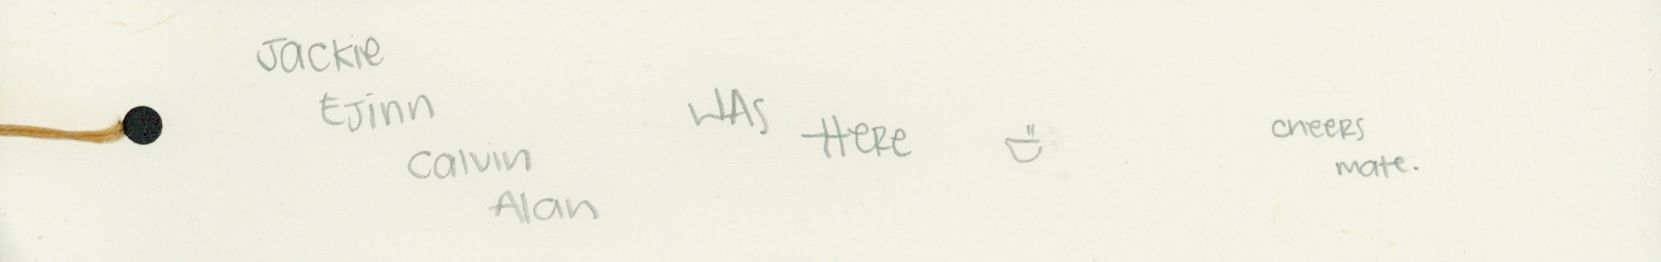 Jackie
EJinn
calvin
Alan
WAS
HeRe
cheeRs
mate.